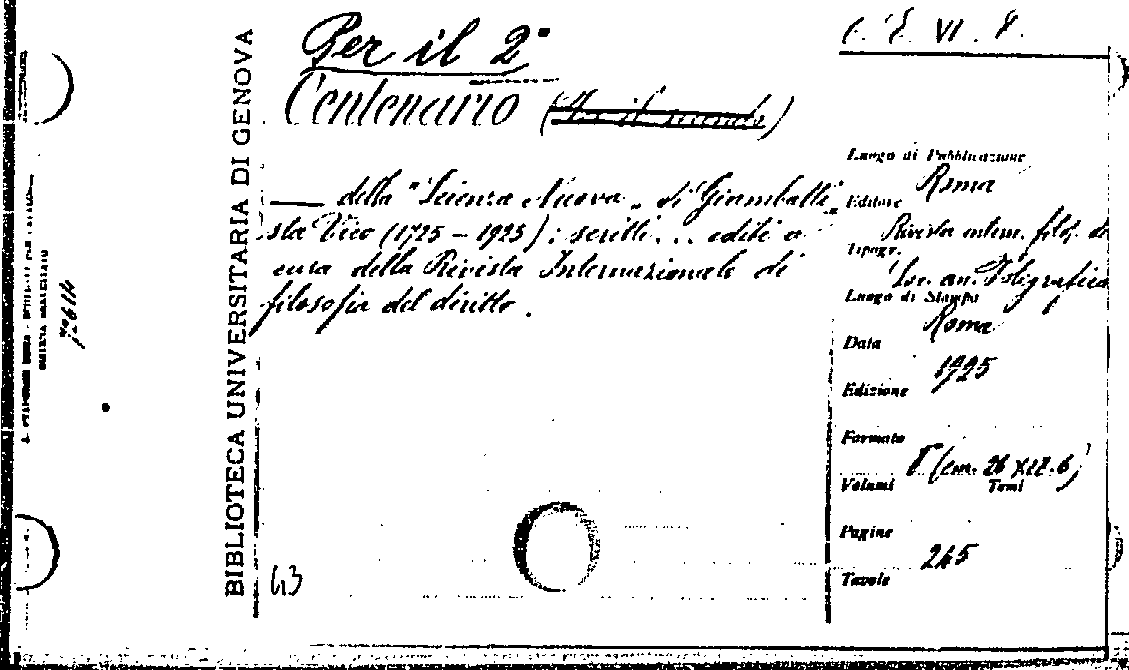 Per il 2°
Centenario (Per il secondo)
BIBLIOTECA UNIVERSITARIA DI GENOVA
— della "Scienza Nuova„ di Giambatti-
sta Vico (1725 - 1925): scritti... editi a
cura della Rivista Internazionale di
filosofia del diritto.
VI
Luogo di Pubblicazione
Roma
Editore
Rivista intern. filos. d
Tipogr.
Poligrafica
Luogo di Stampa
Roma
Data
1925
Edizione
Formato
8° (cm. 26
Volumi
Tomi
Pagine
265
Tavole
43
72614